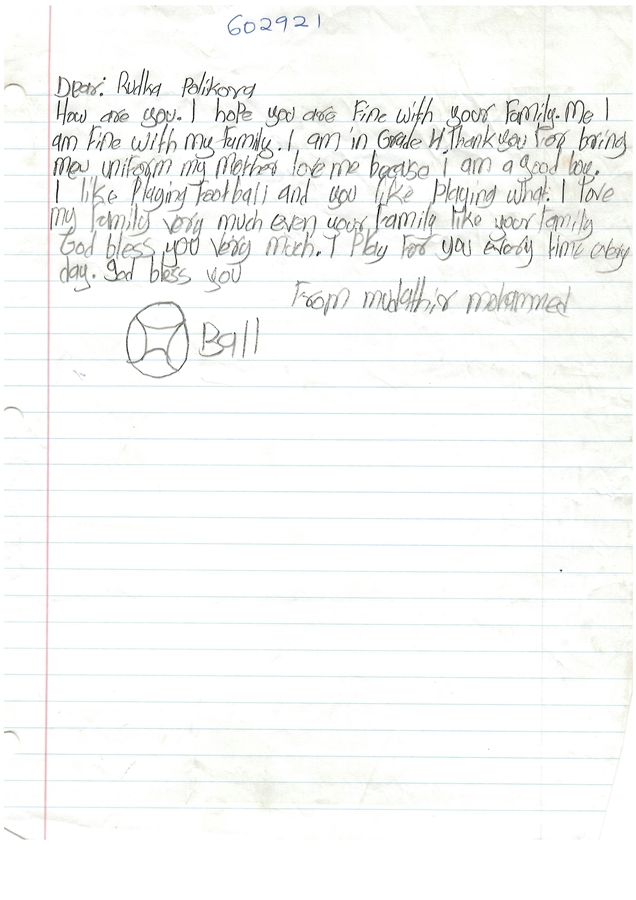 602921
Dear: Rudka Polikova
How are you. I hope you are Fine with your Family. Me I
am Fine with my Family. I am in Grade 4, Thank you For bring
meu uniform my Mother love me becaose I am a good boy.
I like Playing Football and you like Playing what. I love
my Family very much even your Family like your Family
God bless you very much. I Play For you every time every
day. God bless you
From mudathir mohammed
Ball